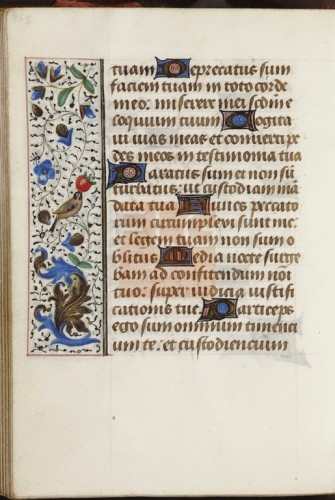 tuam Deprecatus sum
faciem tuam in toto corde
meo: miserere mei scdm e
loquium tuum Cogita
ui uias meas et conuerti pe
des meos in testimonia tua
Paratus sum et non sū
turbatus: ut custodiam mā
data tua Funes peccato
rum circumplexi sunt me:
et legem tuam non sum o
blitus Media nocte surge
bam ad confitendum noī
tuo: super iudicia iustifi
cationis tue Particeps
ego sum omnium timenti
um te: et custodiencium